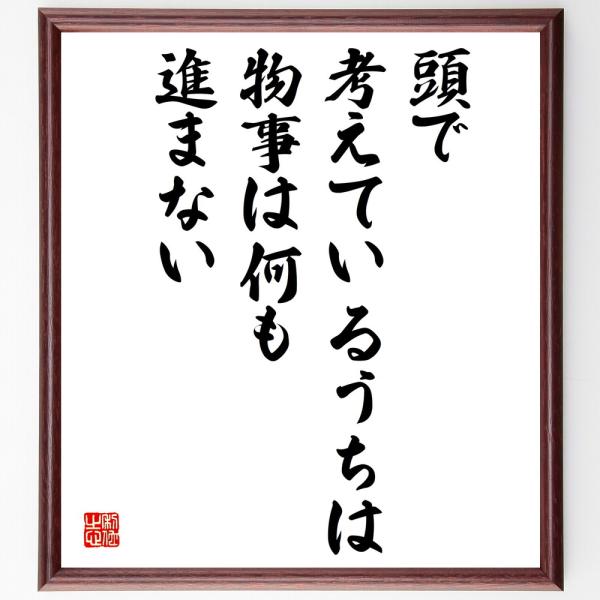 頭で
考えているうちは
物事は何も
進まない